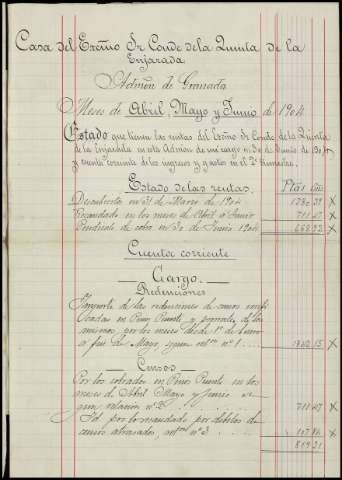 Casa del Excmo Sr Conde de la Quinta de la
Enjarada
Admon de Granada
Meses de Abril, Mayo y Junio de 1904
Estado que tienen las rentas del Excmo Sr Conde de la Quinta
de la Enjarada en esta Admon de mi cargo en 30 de Junio de 1904
y cuenta corriente de los ingresos y gastos en el 2º trimestre.
Estado de las rentas. Ptas Cts
Descubierto en 31 de Marzo de 1904
Recaudado en los meses de Abril a Junio 711 47 X
Pendiente de cobro en 30 de Junio 1904 X
Cuenta corriente
Cargo.
Redenciones
Importe de las redenciones de censos
en Pinos Puente y de los
mismos por los meses desde 1º de Enero
a fin de Mayo, segun nº 1 X
Censos
Por los cobrados en Pinos Puente en los
meses de Abril Mayo y Junio se-
gun relación nº 2 711 47 X
Id por lo recaudado por debitos de
censos atrasados, nº 3 X